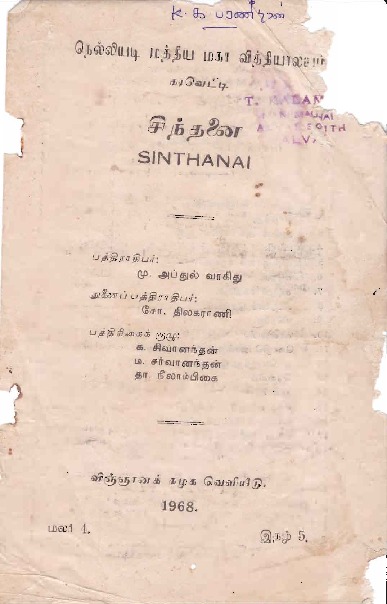 K. க பரணீதரன்
நெல்லியடி மத்திய மகா வித்தியாலயம்
கரவெட்டி
சிந்தனை
SINTHANAI
பத்திராதிபர்:
மு. அப்துல் வாகிது
துணைப் பத்திராதிபர்:
சோ. திலகராணி
பத்திரிகைக் குழு:
க. சிவானந்தன்
ம. சர்வானந்தன்
தா. நீலாம்பிகை
விஞ்ஞானக் கழக வெளியீடு.
1968.
மலர் 4. இதழ் 5.